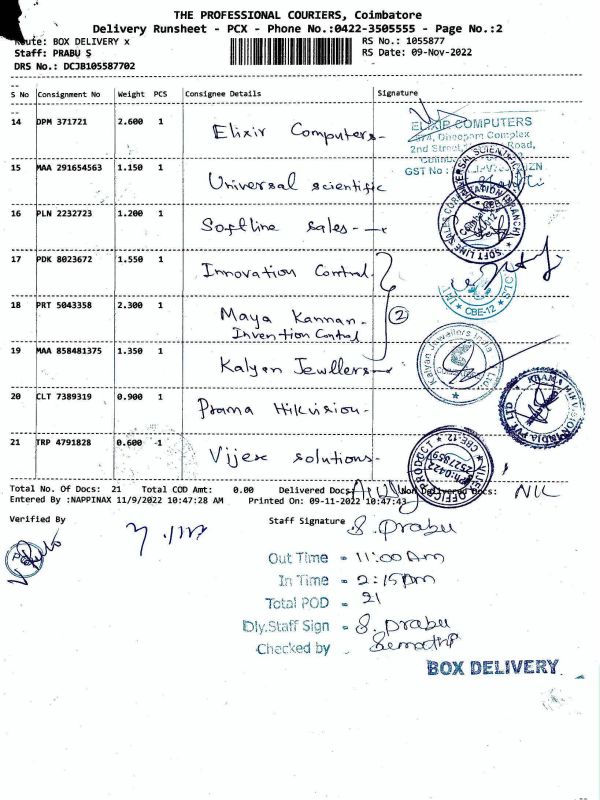 THE PROFESSIONAL COURIERS, Coimbatore
Delivery Runsheet - PCX - Phone No.:0422-3505555 - Page No.:2
Route: BOX DELIVERY x
RS No.: 1055877
Staff: PRABU S
RS Date: 09-Nov-2022
DRS No.: DCJB105587702
S No Consignment No Weight PCS Consignee Details Signature
14 DPM 371721 2.600 1 Elixir Computers-
ELIXIR COMPUTERS
Dheepam Complex
2nd Street, Road,
GST No :
15 MAA 291654563 1.150 1 Universal scientific
16 PLN 2232723 1.200 1 Softline sales-
SOFT LINE SALES CORPORATION (BRANCH)
CBE
17 PDK 8023672 1.550 1 Innovation Control
CBE-12
18 PRT 5043358 2.300 1 Maya Kannan-
Invention Control
2
19 MAA 858481375 1.350 1 Kalyan Jewllers
Kalyan Jewellers India Ltd
20 CLT 7389319 0.900 1 Prama Hikvision-
PRAMA HIKVISION INDIA PVT LTD
21 TRP 4791828 0.600 1 Vijex solutions-
CBE-12
Ph:0422
2527859
Total No. Of Docs: 21 Total COD Amt: 0.00 Delivered Docs: Non Delivered Docs: NIL
Entered By :NAPPINAX 11/9/2022 10:47:28 AM Printed On: 09-11-2022 10:47:43
Verified By
Staff Signature S. Prabu
Out Time - 11:00 Am
In Time - 2:15 Pm
Total POD - 21
Dly.Staff Sign - S. Prabu
Checked by
BOX DELIVERY